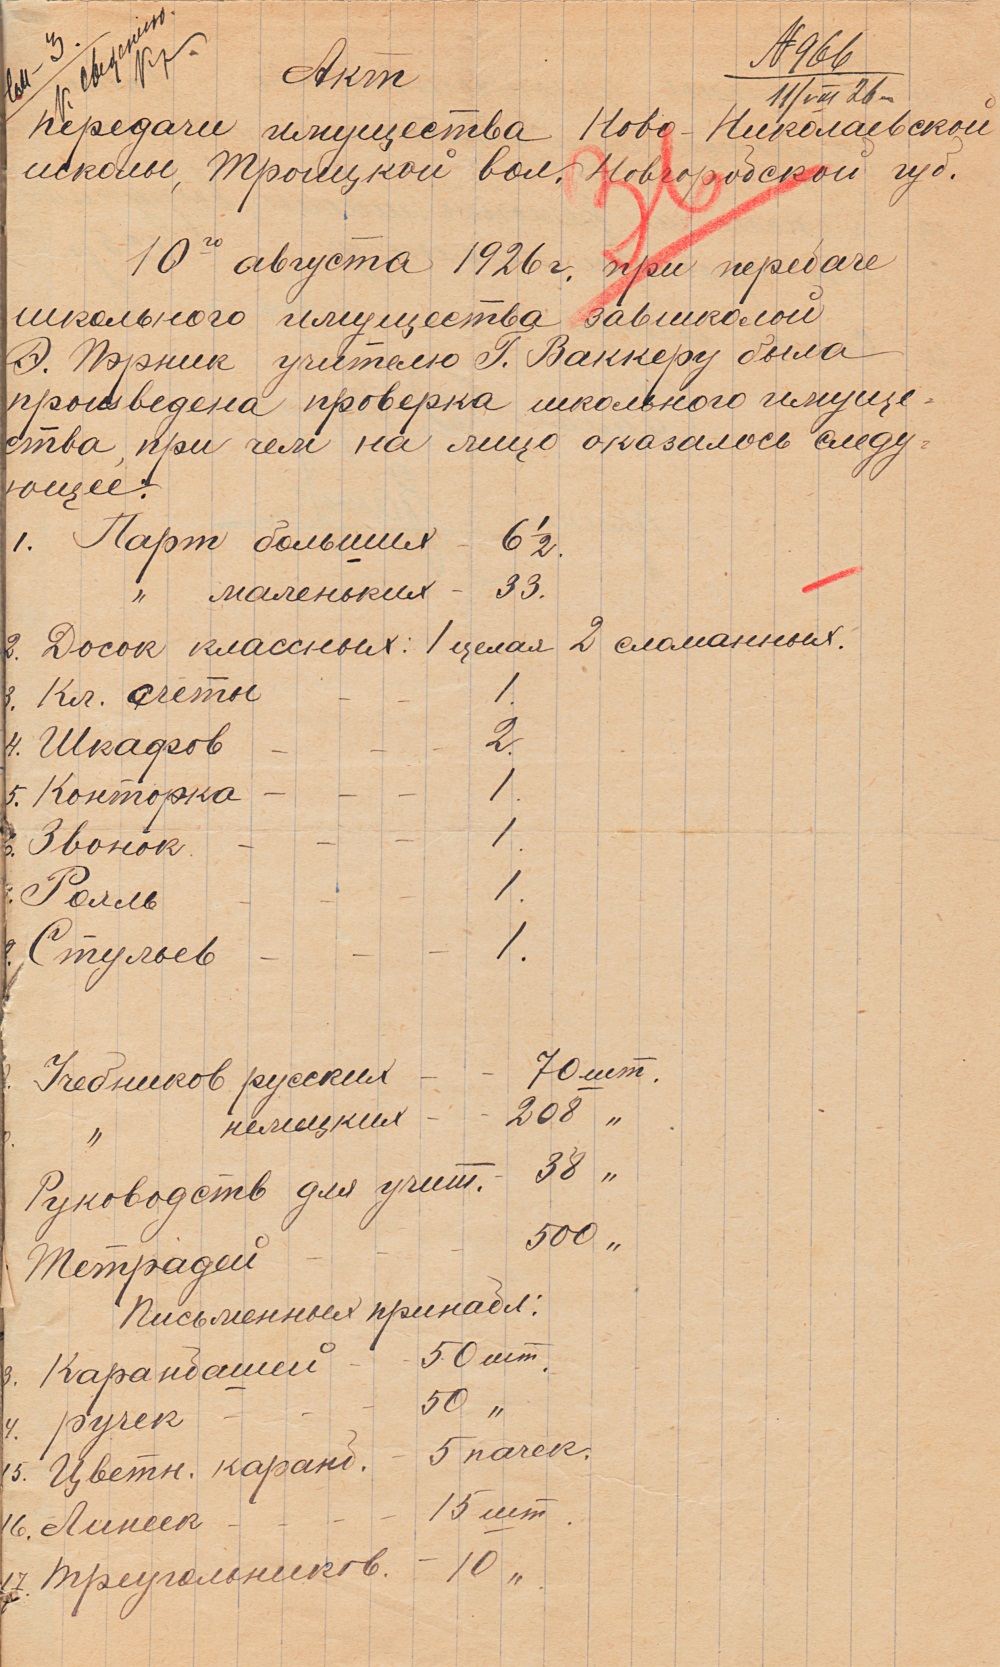 К сведению.
№ 966
11/VIII 26
Акт
передачи имущества Ново-Николаевской
школы, Троицкой вол. Новгородской губ.
36
10го августа 1926 г. при передаче
школьного имущества завшколой
Э. Пэрник учителю Г. Ваккеру была
произведена проверка школьного имуще-
ства, при чем на лицо оказалось следу-
ющее:
1. Парт больших - 6 1/2.
" маленьких - 33.
2. Досок классных: 1 целая 2 сломанных.
3. Кл. счеты - - 1.
4. Шкафов - - - 2.
5. Конторка - - - 1.
6. Звонок - - - 1.
7. Рояль - - - 1.
8. Стульев - - - 1.
Учебников русских - - 70 шт.
" немецких - - 208 "
Руководств для учит. - 38 "
Тетрадей - - - 500 "
Письменных принадл:
3. Карандашей - - 50 шт.
4. ручек - - - 50 "
15. Цветн. каранд. - 5 пачек.
16. Линеек - - - - 15 шт.
17. Треугольников. - 10 "